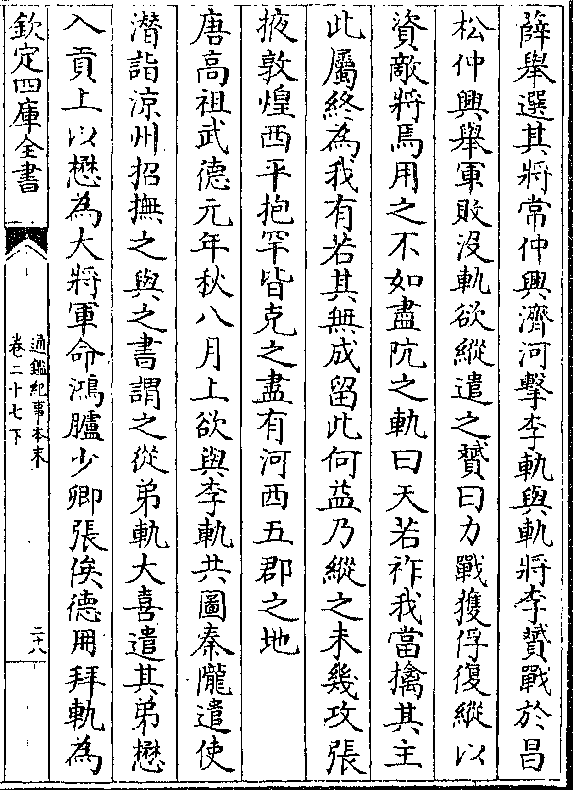 薛舉選其將常仲興濟河擊李軌與軌將李贇戰於昌
松仲興舉軍敗沒軌欲縱遣之贇曰力戰獲俘復縱以
資敵將焉用之不如盡阬之軌曰天若祚我當擒其主
此屬終為我有若其無成留此何益乃縱之未幾攻張
掖敦煌西平抱罕皆克之盡有河西五郡之地
唐高祖武德元年秋八月上欲與李軌共圖秦隴遣使
潛詣涼州招撫之與之書謂之從弟軌大喜遣其弟懋
入貢上以懋為大將軍命鴻臚少卿張俟德冊拜軌為
欽定四庫全書
通鑑紀事本末
卷二十七下
二十八